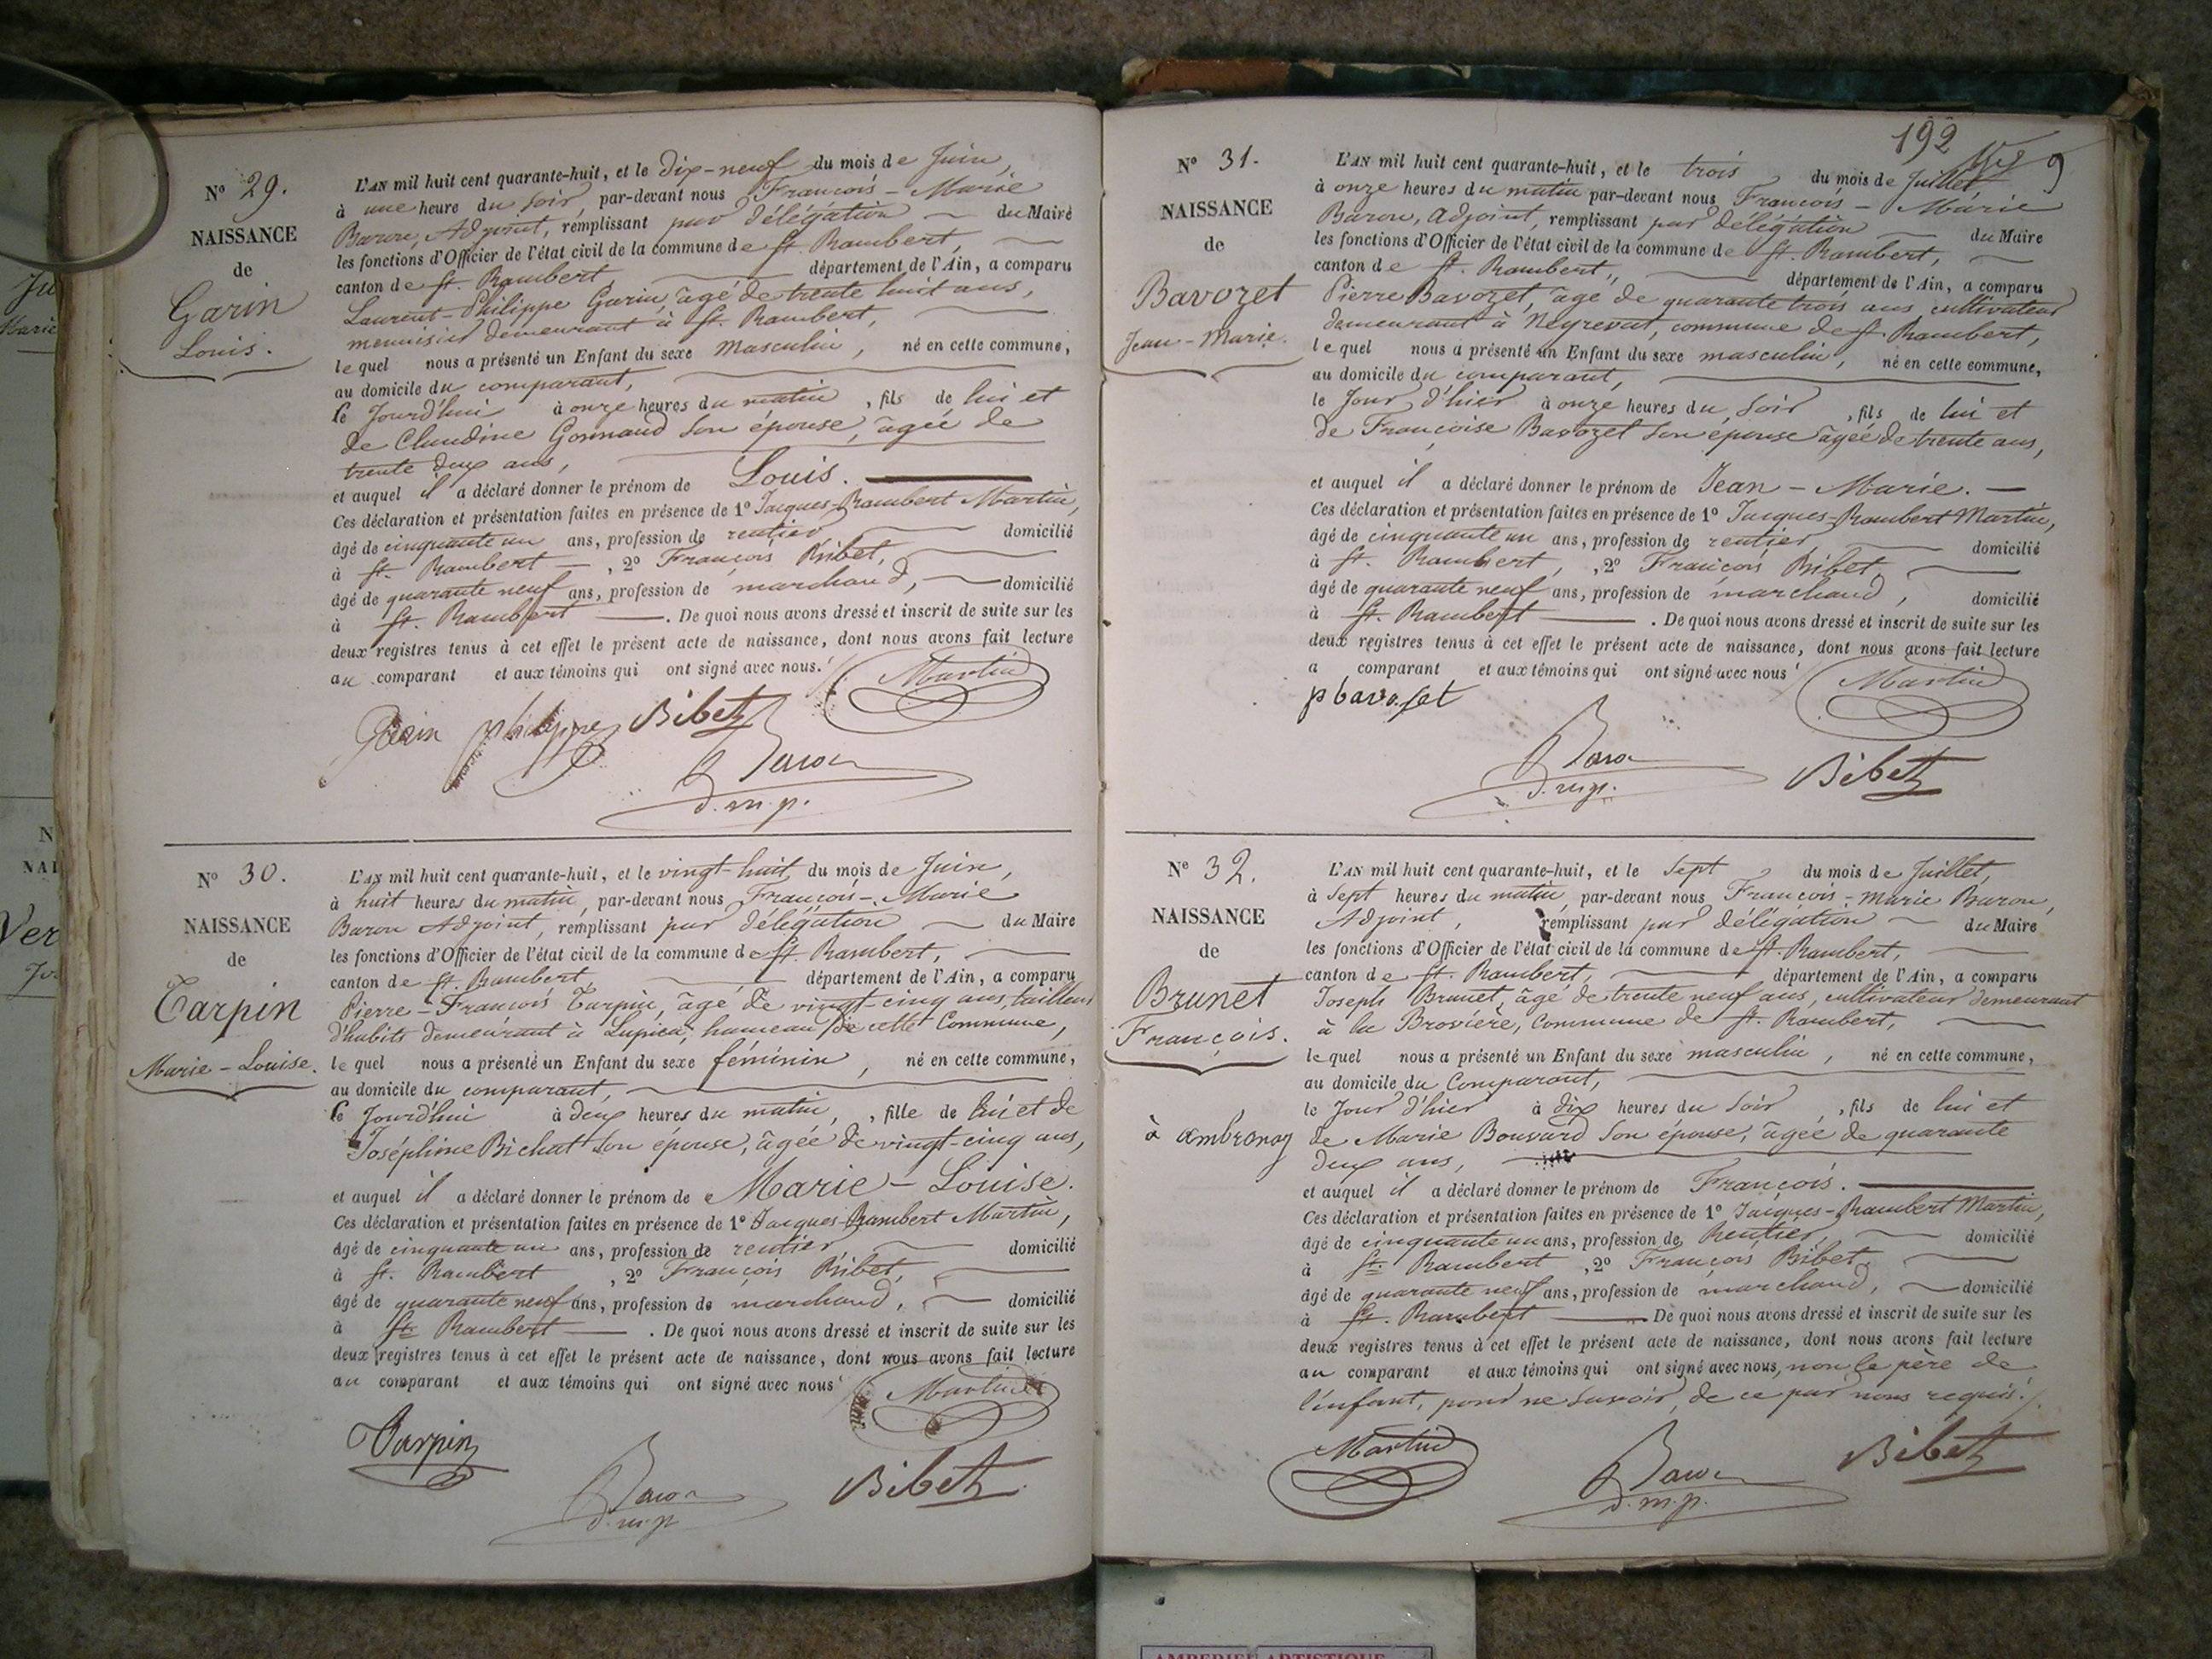 N° 29.
NAISSANCE
de
Garin
Louis.
L'AN mil huit cent quarante-huit, et le dix-neuf du mois de Juin,
à une heure du soir, par-devant nous François-Marie
Baron, Adjoint, remplissant par délégation du Maire
les fonctions d'Officier de l'état civil de la commune de St. Rambert,
canton de St. Rambert département de l'Ain, a comparu
Laurent-Philippe Garin, âgé de trente huit ans,
menuisier demeurant à St. Rambert,
lequel nous a présenté un Enfant du sexe Masculin, né en cette commune,
au domicile du comparant,
le Jourd'hui à onze heures du matin, fils de lui et
de Claudine Gonnand son épouse, âgée de
trente deux ans,
et auquel il a déclaré donner le prénom de Louis.
Ces déclaration et présentation faites en présence de 1° Jacques-Rambert Martin,
âgé de cinquante un ans, profession de rentier domicilié
à St. Rambert, 2° François Bibet,
âgé de quarante neuf ans, profession de marchand, domicilié
à St. Rambert. De quoi nous avons dressé et inscrit de suite sur les
deux registres tenus à cet effet le présent acte de naissance, dont nous avons fait lecture
au comparant et aux témoins qui ont signé avec nous.
Martin
philippe Bibet
Baron
d.m.p.
N° 30.
NAISSANCE
de
Tarpin
Marie-Louise.
L'AN mil huit cent quarante-huit, et le vingt-huit du mois de Juin,
à huit heures du matin, par-devant nous François-Marie
Baron Adjoint, remplissant par délégation du Maire
les fonctions d'Officier de l'état civil de la commune de St. Rambert,
canton de St. Rambert département de l'Ain, a comparu
Pierre-François Tarpin, âgé de vingt-cinq ans, tailleur
d'habits demeurant à Lupieu, hameau de cette Commune,
lequel nous a présenté un Enfant du sexe féminin, né en cette commune,
au domicile du comparant,
le Jourd'hui à deux heures du matin, fille de lui et de
Joséphine Bichat son épouse, âgée de vingt-cinq ans,
et auquel il a déclaré donner le prénom de Marie-Louise.
Ces déclaration et présentation faites en présence de 1° Jacques-Rambert Martin,
âgé de cinquante un ans, profession de rentier domicilié
à St. Rambert, 2° François Bibet,
âgé de quarante neuf ans, profession de marchand, domicilié
à St. Rambert. De quoi nous avons dressé et inscrit de suite sur les
deux registres tenus à cet effet le présent acte de naissance, dont nous avons fait lecture
au comparant et aux témoins qui ont signé avec nous
Martin
Tarpin
Bibet
Baron
d.m.p
192
N° 31.
NAISSANCE
de
Bavozet
Jean-Marie.
L'AN mil huit cent quarante-huit, et le trois du mois de Juillet,
à onze heures du matin par-devant nous François-Marie
Baron, Adjoint, remplissant par délégation du Maire
les fonctions d'Officier de l'état civil de la commune de St. Rambert,
canton de St. Rambert, département de l'Ain, a comparu
Pierre Bavozet, âgé de quarante trois ans, cultivateur
demeurant à Neyrevat, commune de St. Rambert,
lequel nous a présenté un Enfant du sexe masculin, né en cette commune,
au domicile du comparant,
le Jour d'hier à onze heures du soir, fils de lui et
de Françoise Bavozet son épouse âgée de trente ans,
et auquel il a déclaré donner le prénom de Jean-Marie.
Ces déclaration et présentation faites en présence de 1° Jacques-Rambert Martin,
âgé de cinquante un ans, profession de rentier domicilié
à St. Rambert, 2° François Bibet,
âgé de quarante neuf ans, profession de marchand, domicilié
à St. Rambert. De quoi nous avons dressé et inscrit de suite sur les
deux registres tenus à cet effet le présent acte de naissance, dont nous avons fait lecture
a comparant et aux témoins qui ont signé avec nous
Martin
p bavoset
Baron
d.m.p.
Bibet
N° 32.
NAISSANCE
de
Brunet
François.
à ambronay
L'AN mil huit cent quarante-huit, et le sept du mois de Juillet,
à sept heures du matin, par-devant nous François-Marie Baron,
Adjoint, remplissant par délégation du Maire
les fonctions d'Officier de l'état civil de la commune de St. Rambert,
canton de St. Rambert, département de l'Ain, a comparu
Joseph Brunet, âgé de trente neuf ans, cultivateur demeurant
à la Brovière, Commune de St. Rambert,
lequel nous a présenté un Enfant du sexe masculin, né en cette commune,
au domicile du Comparant,
le Jour d'hier à dix heures du soir, fils de lui et
de Marie Bouvard son épouse, âgée de quarante
deux ans,
et auquel il a déclaré donner le prénom de François.
Ces déclaration et présentation faites en présence de 1° Jacques-Rambert Martin,
âgé de cinquante un ans, profession de Rentier, domicilié
à St. Rambert, 2° François Bibet,
âgé de quarante neuf ans, profession de marchand, domicilié
à St. Rambert. De quoi nous avons dressé et inscrit de suite sur les
deux registres tenus à cet effet le présent acte de naissance, dont nous avons fait lecture
au comparant et aux témoins qui ont signé avec nous, non le père de
l'enfant, pour ne savoir, de ce par nous requis.
Martin
Baron
d.m.p.
Bibet
AMBERIEU ARTISTIQUE